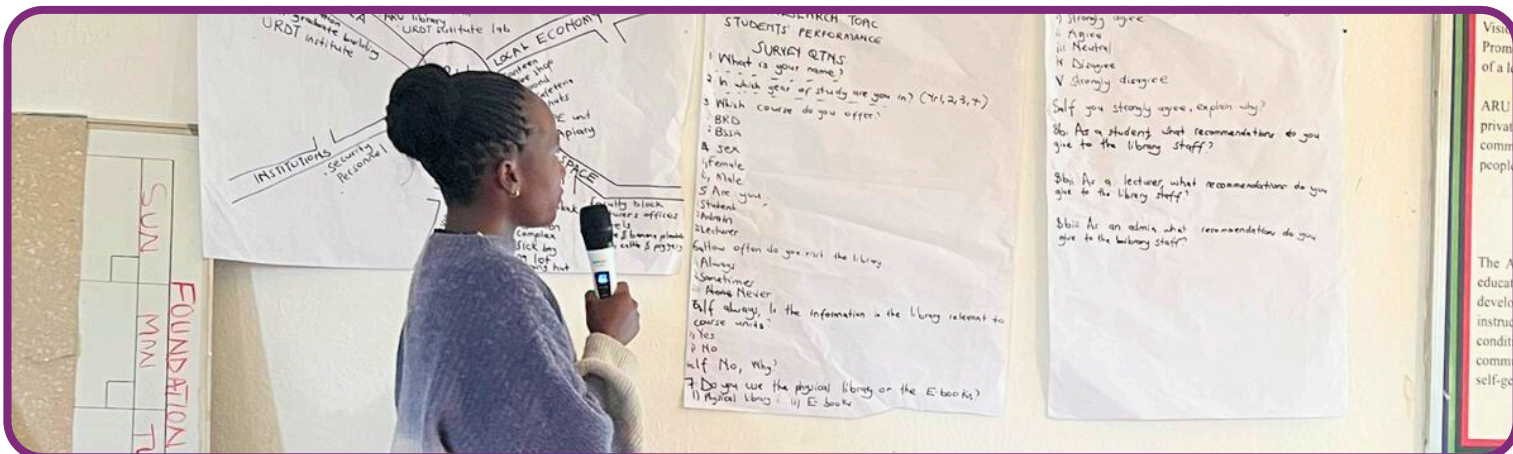 SUN MM
FOUNDATION
graduate building
URDT institute
ARU library
URDT institute lab
LOCAL ECONOMY
Apiary
INSTITUTIONS
Security
Personnel
SPACE
faculty block
offices
complex
Sick bay
STUDENTS' PERFORMANCE
SURVEY QTNS
1 What is your name?
2 In which year of study are you in? (Yr1, 2, 3, 4)
3 Which course do you offer?
BRD
BSSA
4 Sex
i, Female
ii, Male
5 Are you:
Student
Admin
Lecturer
How often do you visit the library
Always
Sometimes
Never
If always, Is the information in the library relevant to
course units?
i, Yes
ii No
If No, Why?
7. Do you use the physical library or the E-books?
i) Physical library ii) E-books
i) Strongly agree
ii Agree
iii Neutral
iv Disagree
V Strongly disagree
If you strongly agree, explain why?
8b. As a student what recommendations do you
give to the library staff?
8bii As a lecturer, what recommendations do you
give to the library staff?
8biii As an admin what recommendations do you
give to the library staff?
of a l
ARU
privat
comm
people
The A
educat
develo
instruc
condit
commu
self-ge